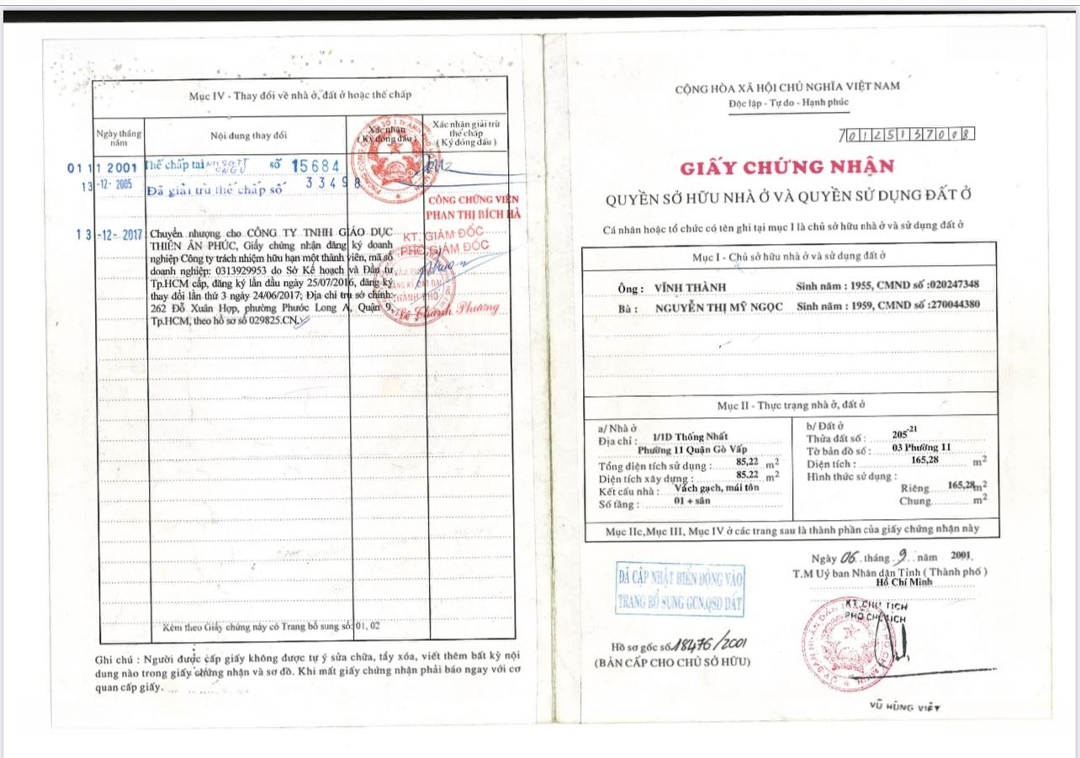 Mục IV - Thay đổi về nhà ở, đất ở hoặc thế chấp
Ngày tháng năm
Nội dung thay đổi
Xác nhận
(Ký đóng dấu)
Xác nhận giải trừ thế chấp
(Ký đóng dấu)
01 11 2001 Thế chấp tại số 15684
13 -12- 2005 Đã giải trừ thế chấp số 33498
CÔNG CHỨNG VIÊN
PHAN THỊ BÍCH HÀ
13 -12- 2017 Chuyển nhượng cho CÔNG TY TNHH GIÁO DỤC
THIÊN ÂN PHÚC, Giấy chứng nhận đăng ký doanh
nghiệp Công ty trách nhiệm hữu hạn một thành viên, mã số
doanh nghiệp: 0313929953 do Sở Kế hoạch và Đầu tư
Tp.HCM cấp, đăng ký lần đầu ngày 25/07/2016, đăng ký
thay đổi lần thứ 3 ngày 24/06/2017; Địa chỉ trụ sở chính:
262 Đỗ Xuân Hợp, phường Phước Long A, Quận 9,
Tp.HCM, theo hồ sơ số 029825.CN
KT. GIÁM ĐỐC
PHÓ GIÁM ĐỐC
Kèm theo Giấy chứng này có Trang bổ sung số: 01, 02
Ghi chú : Người được cấp giấy không được tự ý sửa chữa, tẩy xóa, viết thêm bất kỳ nội
dung nào trong giấy chứng nhận và sơ đồ. Khi mất giấy chứng nhận phải báo ngay với cơ
quan cấp giấy.
CỘNG HÒA XÃ HỘI CHỦ NGHĨA VIỆT NAM
Độc lập - Tự do - Hạnh phúc
70125137008
GIẤY CHỨNG NHẬN
QUYỀN SỞ HỮU NHÀ Ở VÀ QUYỀN SỬ DỤNG ĐẤT Ở
Cá nhân hoặc tổ chức có tên ghi tại mục I là chủ sở hữu nhà ở và sử dụng đất ở
Mục I - Chủ sở hữu nhà ở và sử dụng đất ở
Ông : VĨNH THÀNH Sinh năm : 1955, CMND số :020247348
Bà : NGUYỄN THỊ MỸ NGỌC Sinh năm : 1959, CMND số :270044380
Mục II - Thực trạng nhà ở, đất ở
a/ Nhà ở
Địa chỉ : 1/1D Thống Nhất
Phường 11 Quận Gò Vấp
Tổng diện tích sử dụng : 85,22 m²
Diện tích xây dựng : 85,22 m²
Kết cấu nhà : Vách gạch, mái tôn
Số tầng : 01 + sân
b/ Đất ở
Thửa đất số : 205-21
Tờ bản đồ số : 03 Phường 11
Diện tích : 165,28 m²
Hình thức sử dụng :
Riêng 165,28 m²
Chung m²
Mục IIc,Mục III, Mục IV ở các trang sau là thành phần của giấy chứng nhận này
Ngày 06 tháng 9 năm 2001
T.M Uỷ ban Nhân dân Tỉnh ( Thành phố )
Hồ Chí Minh
KT.CHỦ TỊCH
PHÓ CHỦ TỊCH
ĐÃ CẬP NHẬT BIẾN ĐỘNG VÀO
TRANG BỔ SUNG GCN.QSD ĐẤT
Hồ sơ gốc số 18476/2001
(BẢN CẤP CHO CHỦ SỞ HỮU)
VŨ HÙNG VIỆT